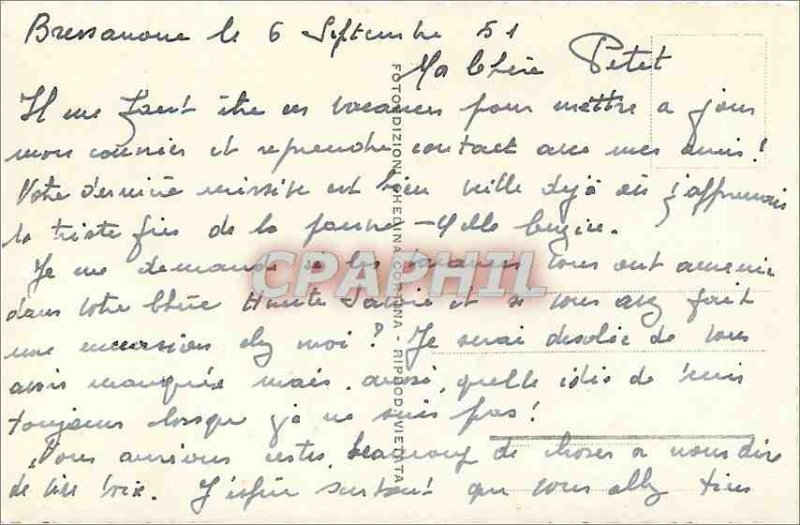 Bressanone le 6 Septembre 51
Ma Chère Petet
Il me faut être en vacances pour mettre a jour
mon courrier et reprendre contact avec mes amis!
Votre dernière missive est bien vieille déjà où j'apprenais
la triste fin de la pauvre Melle
Je me demande si les vacances vous ont amenée
dans votre Chère Haute Savoie et si vous avez fait
une excursion chez moi? Je serai desolée de vous
avoir manquée mais, aussi, quelle idée de venir
toujours lorsque j'y ne suis pas!
Nous aurions certes beaucoup de choses a nous dire
de vive voix. J'espère surtout que vous allez bien
FOTOEDIZIONI GHEDINA CORTINA - RIPROD. VIETATA
CPAPHIL